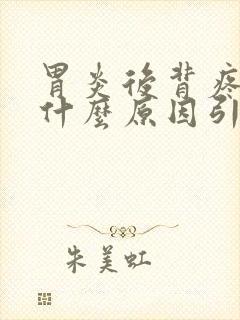 胃炎後背疼
什麼原因引
朱美虹